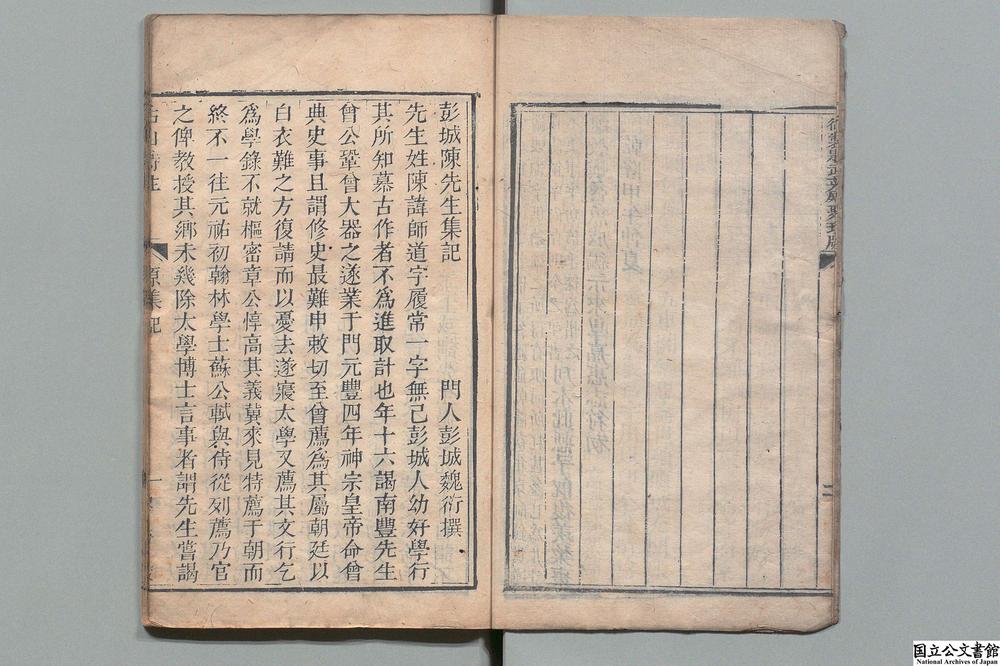 彭城陳先生集記
門人彭城魏衍撰
先生姓陳諱師道字履常一字無己彭城人幼好學行
其所知慕古作者不爲進取計也年十六謁南豐先生
曾公鞏曾大器之遂業于門元豐四年神宗皇帝命曾
典史事且謂修史最難申敕切至曾薦爲其屬朝廷以
白衣難之方復請而以憂去遂寢太學又薦其文行乞
爲學錄不就樞密章公惇高其義冀來見特薦于朝而
終不一往元祐初翰林學士蘇公軾與侍從列薦乃官
之俾教授其鄉未幾除太學博士言事者謂先生嘗謁
原集記
一
二
国立公文書館
National Archives of Japan